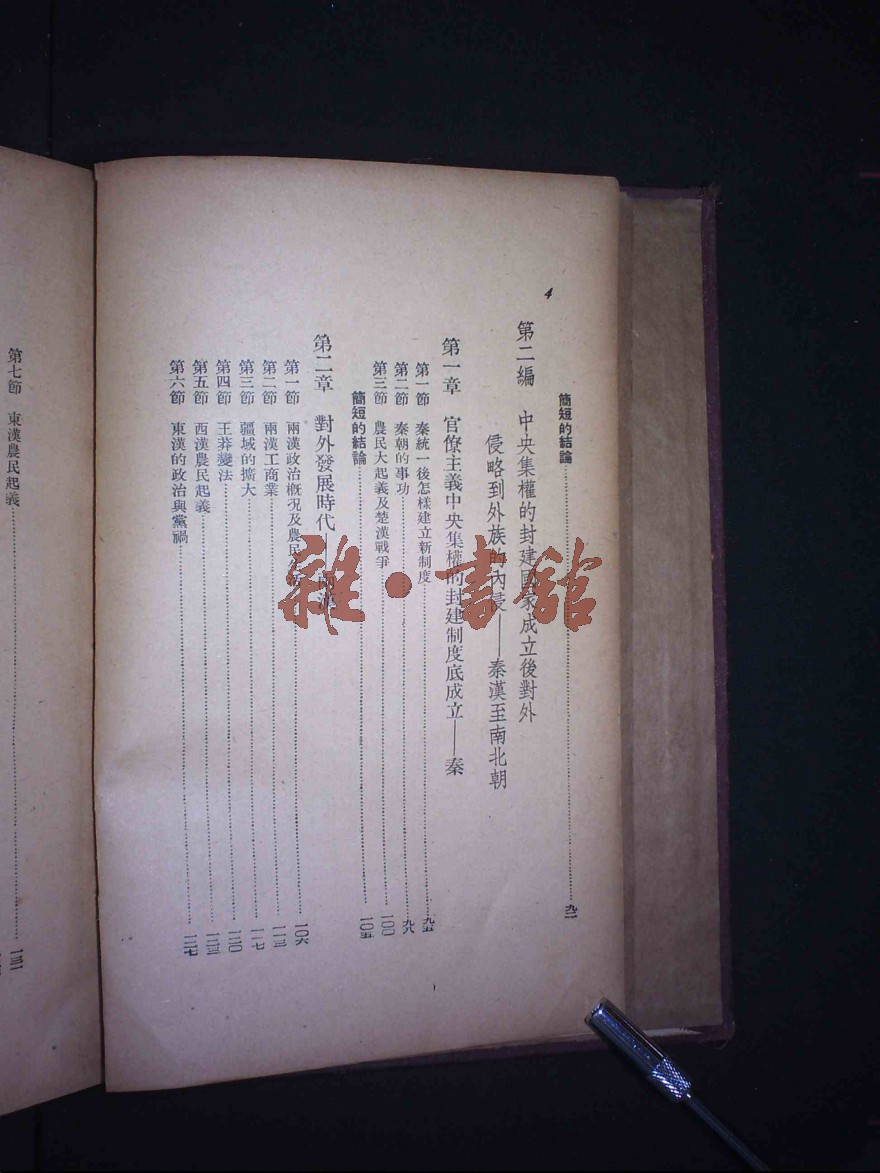 4
簡短的結論……九二
第二編 中央集權的封建國家成立後對外
侵略到外族的內侵——秦漢至南北朝
第一章 官僚主義中央集權的封建制度底成立——秦
第一節 秦統一後怎樣建立新制度……九五
第二節 秦朝的事功……九八
第三節 農民大起義及楚漢戰爭……一〇〇
簡短的結論……一〇五
第二章 對外發展時代——兩漢
第一節 兩漢政治概況及農民生活……一〇六
第二節 兩漢工商業……一一三
第三節 疆域的擴大……一一七
第四節 王莽變法……一二〇
第五節 西漢農民起義……一二三
第六節 東漢的政治與黨禍……一二七
第七節 東漢農民起義……一三一
雜·書館